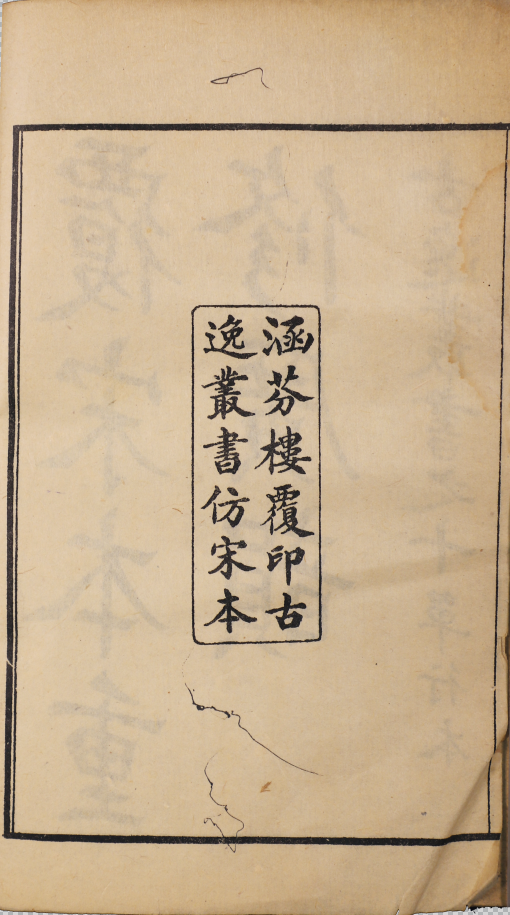 涵芬樓覆印古
逸叢書仿宋本